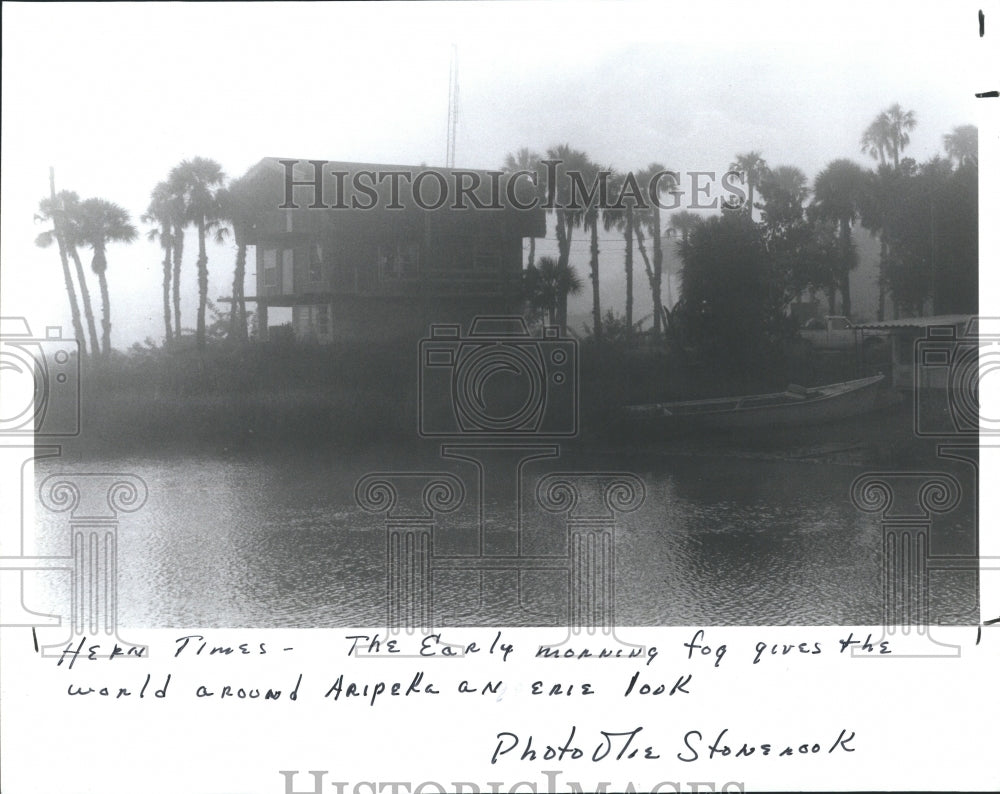 HISTORIC IMAGES
Hern Times - The Early morning fog gives the
world around Aripeka an erie look
Photo Olie Stonerook
HISTORIC IMAGES